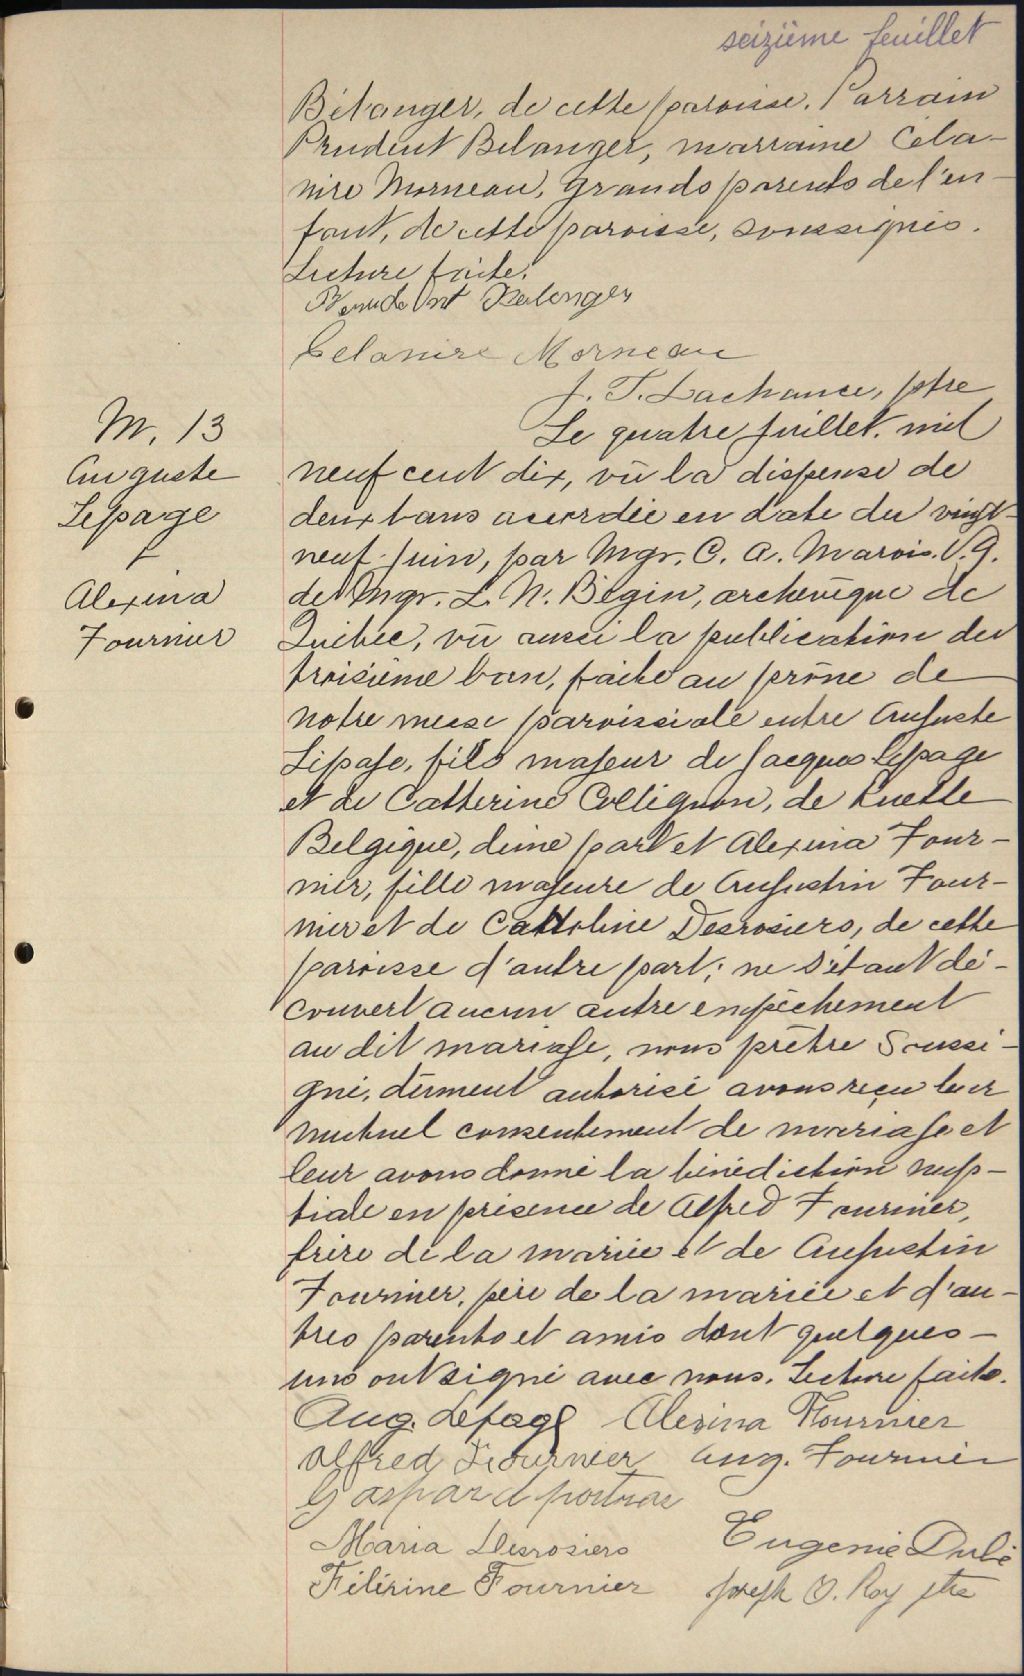 seizième feuillet
Bélanger, de cette paroisse. Parrain
Prudent Belanger, marraine Céla-
nire Morneau, grands parents de l'en-
fant, de cette paroisse, soussignés.
Lecture faite.
Prudent Belanger
Celanire Morneau
J. T. Lachance, ptre
M. 13
Auguste
Lepage
&
Alexina
Fournier
Le quatre juillet mil
neuf cent dix, vû la dispense de
deux bans accordée en date du vingt-
neuf juin, par Mgr. C. A. Marois V.G.
de Mgr. L. N. Bégin, archevêque de
Québec, vû aussi la publication du
troisième ban, faite au prône de
notre messe paroissiale entre Auguste
Lepage, fils majeur de Jacques Lepage
et de Catherine Collignon, de
Belgique, d'une part et Alexina Four-
nier, fille majeure de Augustin Four-
nier et de Desrosiers, de cette
paroisse d'autre part; ne s'étant dé-
couvert aucun autre empêchement
au dit mariage, nous prêtre soussi-
gné, dûment autorisé avons reçu leur
mutuel consentement de mariage et
leur avons donné la bénédiction nup-
tiale en présence de Alfred Fournier,
frère de la mariée et de Augustin
Fournier, père de la mariée et d'au-
tres parents et amis dont quelques-
uns ont signé avec nous. Lecture faite.
Aug. Lepage Alexina Fournier
Alfred Fournier Aug. Fournier
Gaspard
Maria Desrosiers Eugenie Dubé
Félérine Fournier Joseph O. Roy ptre